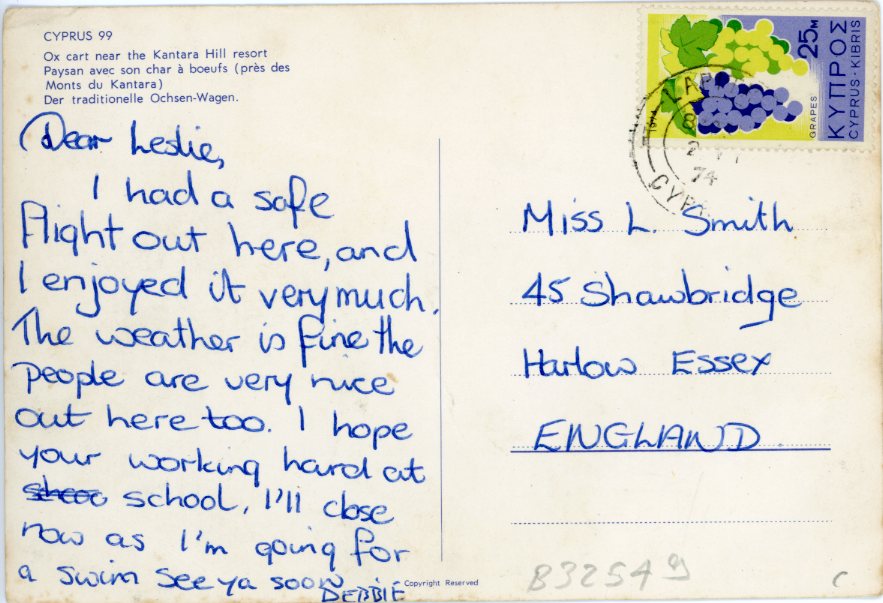 CYPRUS 99
Ox cart near the Kantara Hill resort
Paysan avec son char à boeufs (près des
Monts du Kantara)
Der traditionelle Ochsen-Wagen.
Dear Leslie,
I had a safe
flight out here, and
I enjoyed it very much.
The weather is fine the
people are very nice
out here too. I hope
your working hard at
school, I'll close
now as I'm going for
a swim see ya soon
DEBBIE
Copyright Reserved
25M
GRAPES
ΚΥΠΡΟΣ
CYPRUS·KIBRIS
74
Miss L. Smith
45 Shawbridge
Harlow Essex
ENGLAND
B32549
c